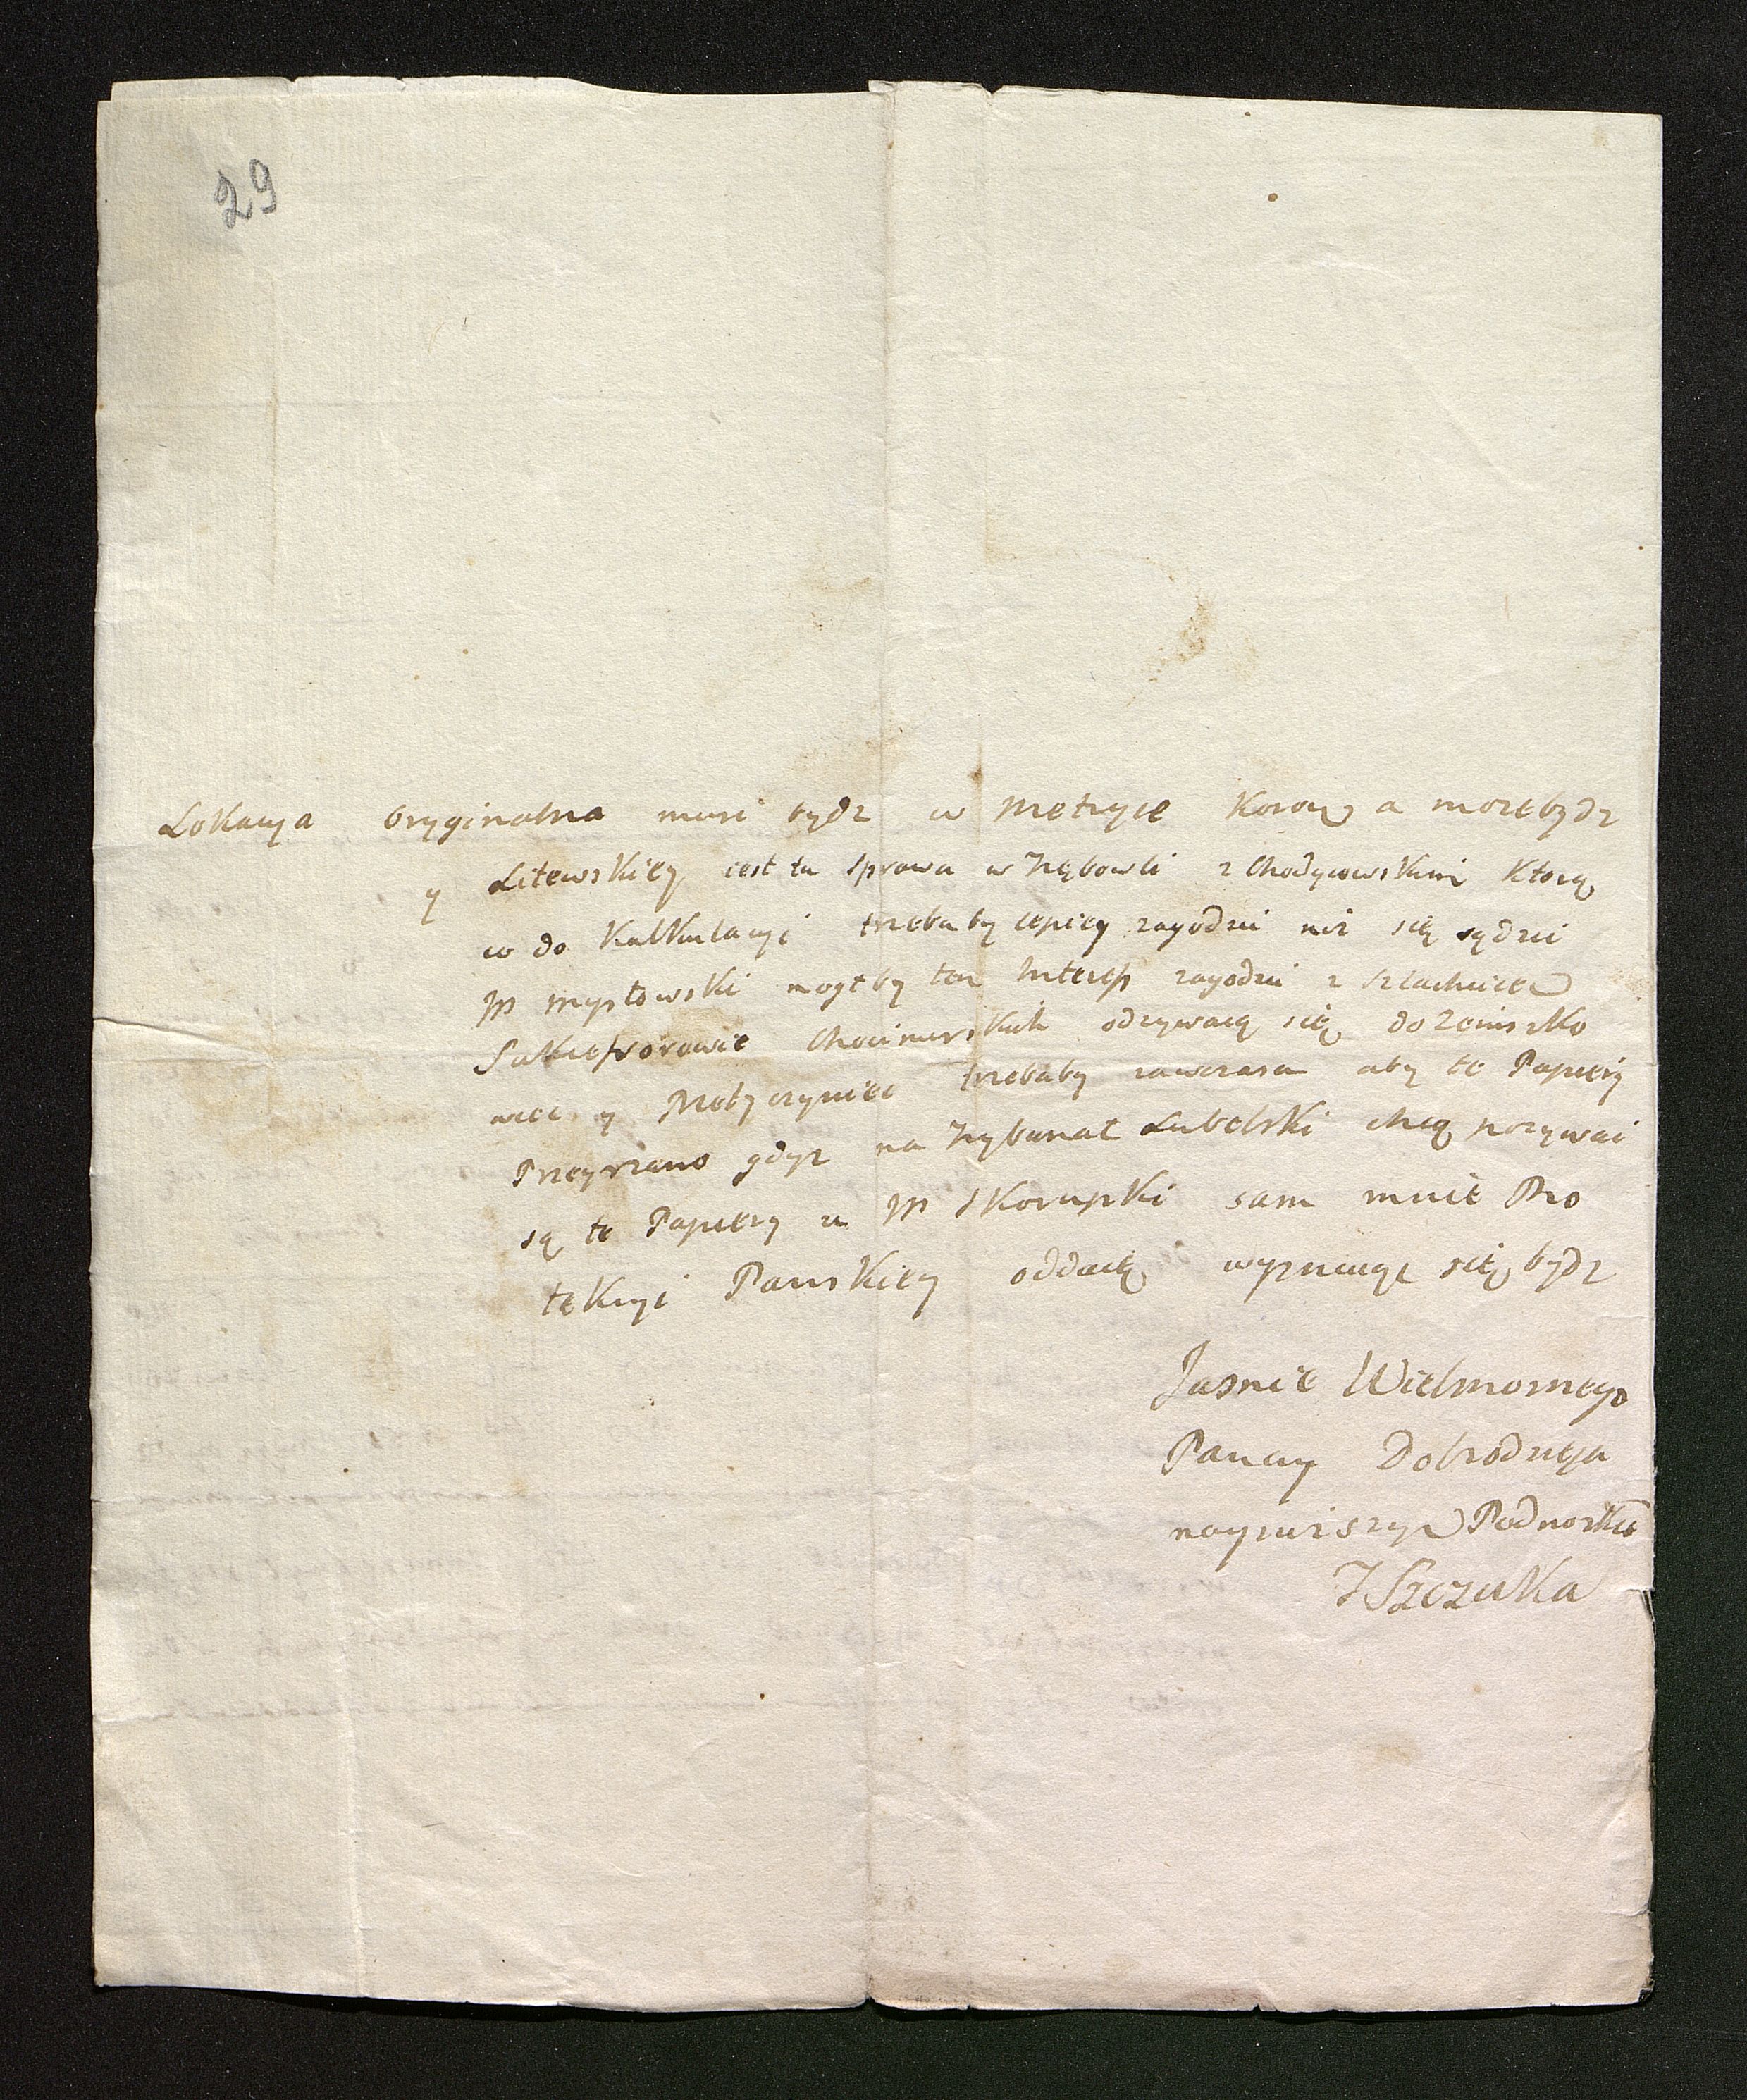 29
Lokacya Oryginalna musi bydz w Metryce Korony a moze bydz
y Litewskiey iest tu sprawa w Trębowli z Chodyiowskimi Ktorą
co do Kalkulacyi trzeba by lepiey zagodzić niż się sądzić
JP Mysłowski mogłby ten Interess zagodzić z Szlachcicem
Sukcessorowie Chocimirskich odzywaią się do Zeniszko
wiec y Metyczyniec trzebaby zawczasu aby te Papiery
Przeyrzano gdyż na Trybunał Lubelski chcą pozywać
są te Papiery u JP Skorupki sam mnie Pro
tekcyi Panskiey oddaię wyznaiąc się bydz
Jasnie Wielmoznego
Pana y Dobrodzieja
nayniższym Podnoszkiem
J Szczuka